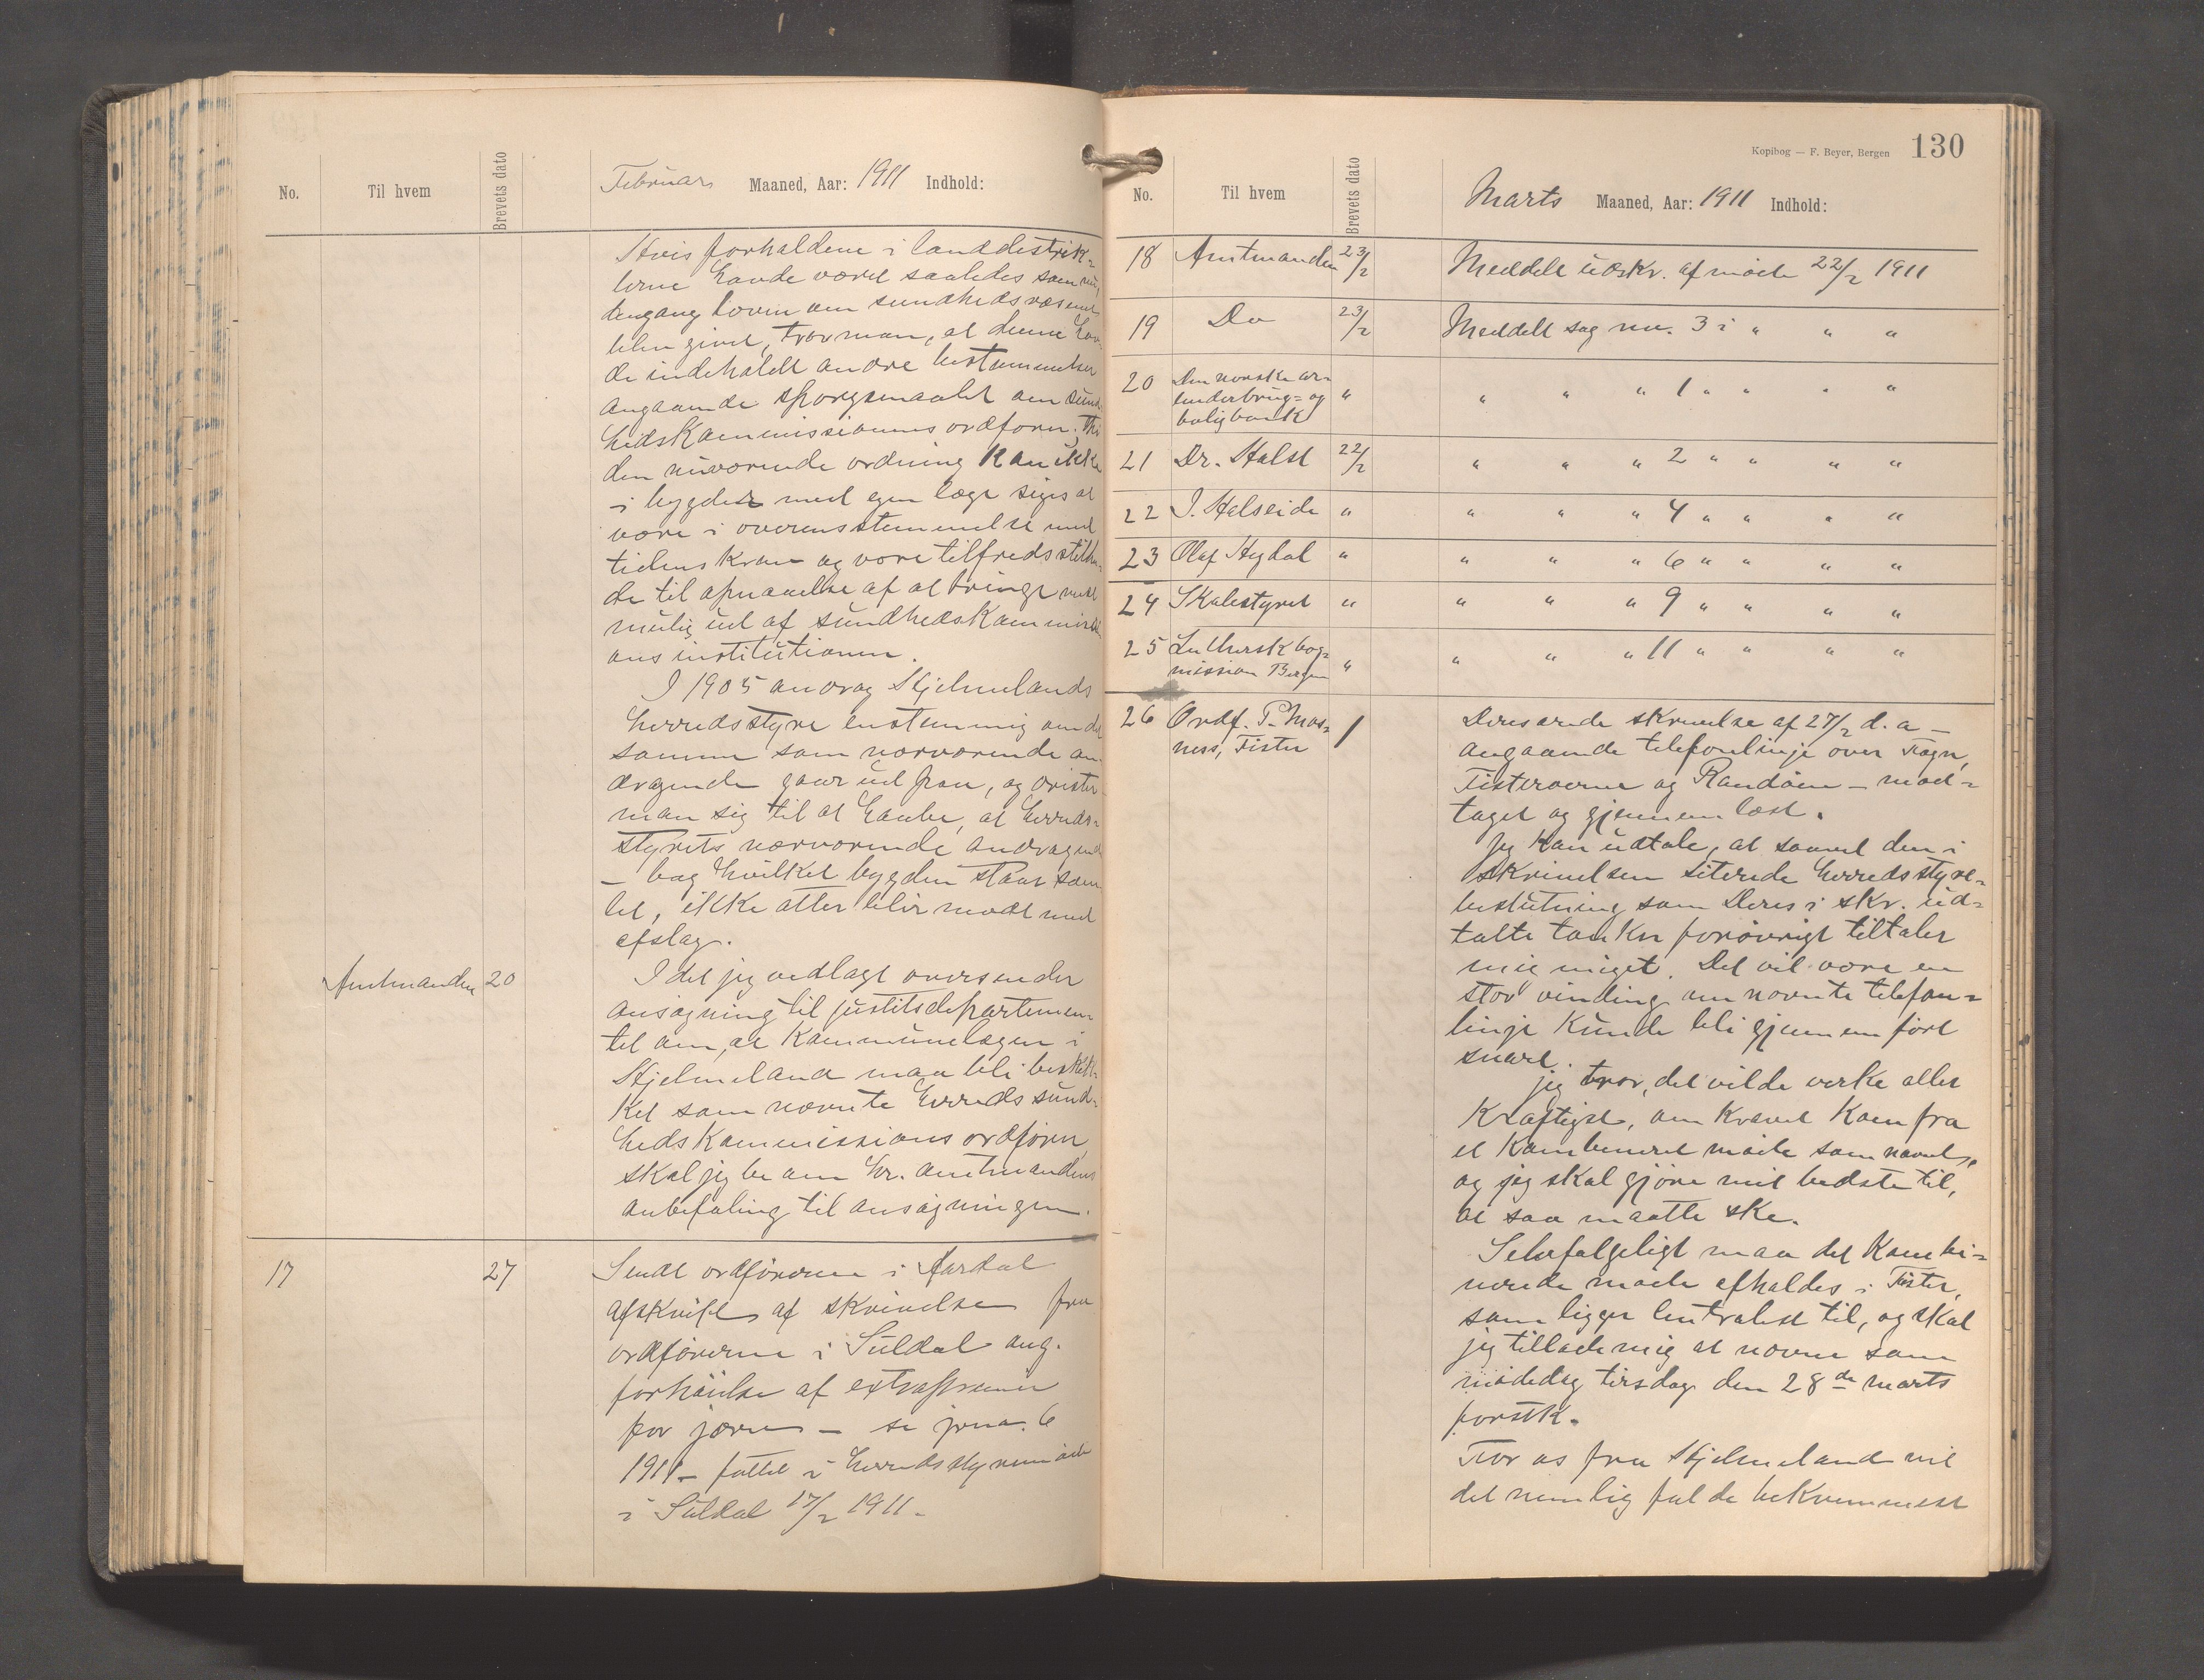 No. Til hvem Brevets dato Februar Maaned, Aar: 1911 Indhold:
Hvis forholdene i landdistrik-
terne havde været saaledes som nu,
dengang loven om sundhedsvæsenet
blev givet, tror man, at denne hav-
de indeholdt andre bestemmelser
angaaende spørgsmaalet om sund-
hedskommissionens ordfører; thi
den nuværende ordning kan ikke
i bygder med egen læge siges at
være i overensstemmelse med
tidens krav og være tilfredsstillen-
de til opnaaelse af at bringe mest
mulig ud af sundhedskommissi-
ons institutionen.
I 1905 androg Hjelmelands
herredsstyre enstemmig om det
samme som nærværende an-
dragende gaar ud paa, og drister
man sig til at haabe, at herreds-
styrets nærværende andragende
– bag hvilket bygden staar sam-
let, ikke atter blir mødt med
afslag.
Amtmanden 20 Idet jeg vedlagt oversender
ansøgning til justitsdepartemen-
tet om, at kommunelægen i
Hjelmeland maa bli beskik-
ket som nævnte herreds sund-
hedskommissions ordfører,
skal jeg be om hr. amtmandens
anbefaling til ansøgningen.
17 27 Sendt ordføreren i Aardal
afskrift af skrivelse fra
ordføreren i Suldal ang.
forhøielse af
for – se jrnr. 6
1911 – fattet i herredsstyremøde
i Suldal 17/2 1911.
Kopibog — F. Beyer, Bergen 130
No. Til hvem Brevets dato Marts Maaned, Aar: 1911 Indhold:
18 Amtmanden 23/2 Meddelt udskr. af møde 22/2 1911
19 Do 23/2 Meddelt sag no. 3 i " " "
20 Den norske ar-
beiderbrug- og " " " " 1 " " " "
boligbank
21 Dr. Holst 22/2 " " " 2 " " " "
22 J. Halseide " " " " 4 " " " "
23 Olaf Hydal " " " " 6 " " " "
24 Skolestyret " " " " 9 " " " "
25 Luthersk bog-
mission Bergen " " " " 11 " " " "
26 Ordf. P. Mos- 1 Deres ærede skrivelse af 27/2 d. a –
ness, Fister angaaende telefonlinje over Fogn,
Fisterøerne og Randøen – mod-
taget og gjennemlæst.
Jeg kan udtale, at saavel den i
skrivelsen siterede herredsstyre-
beslutning som Deres i skr. ud-
talte tanker forøvrigt tiltaler
mig meget. Det vil være en
stor vinding om nævnte telefon-
linje kunde bli gjennemført
snart.
jeg tror, det vilde virke aller
kraftigst, om kravet kom fra
et kombineret møde som nævnt,
og jeg skal gjøre mit bedste til,
at saa maatte ske.
Selvfølgeligt maa det kombi-
nerede møde afholdes i Fister,
som ligger sentralest til, og skal
jeg tillade mig at nævne som
mødedag tirsdag den 28de marts
førstk.
For os fra Hjelmeland vil
det nemlig falde bekvemmest